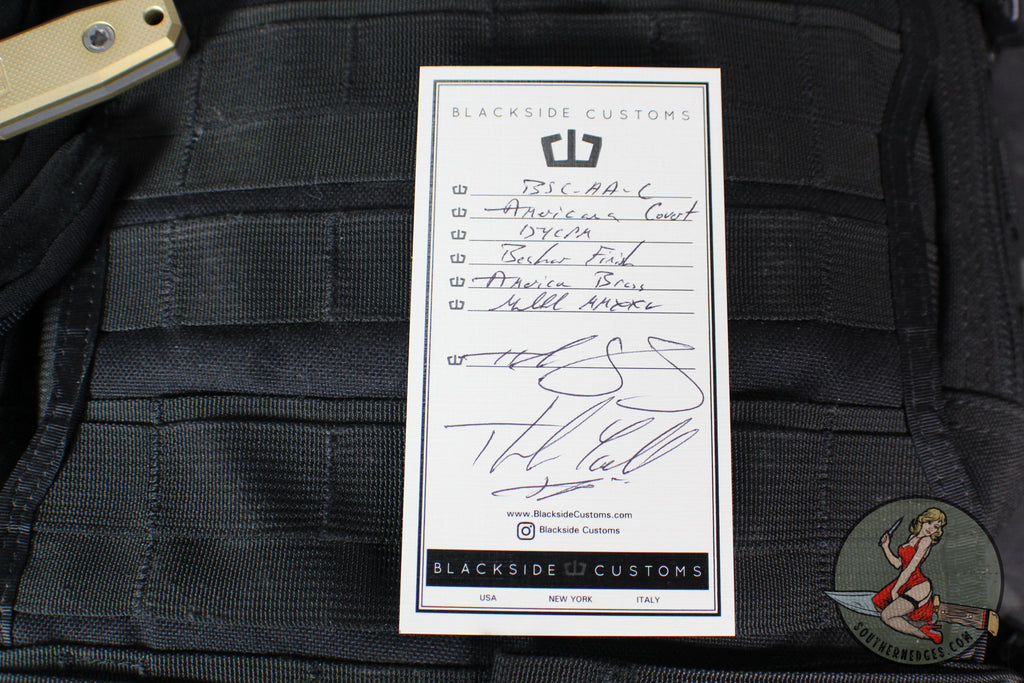 BLACKSIDE CUSTOMS
BSC-AA-C
Americana Covert
Finish
America Brass
MMXXV
Thank You
www.BlacksideCustoms.com
Blackside Customs
BLACKSIDE CUSTOMS
USA NEW YORK ITALY
SOUTHERNEDGES.COM